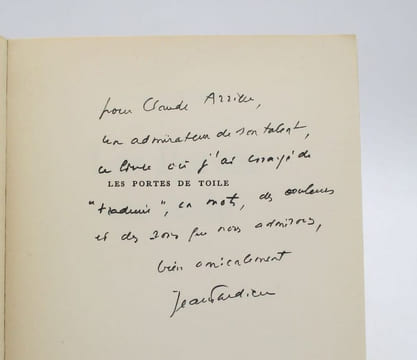 pour Claude Arrieu,
un admirateur de son talent,
ce livre où j'ai essayé de
LES PORTES DE TOILE
"traduire", en mots, des couleurs
et des sons que nous admirons,
bien amicalement
Jean Tardieu